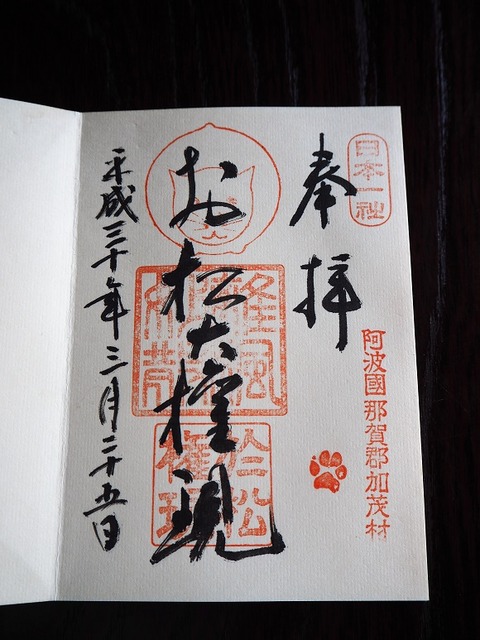 日本一社
奉拝
阿波國那賀郡加茂村
お松大権現
於松
権現
平成三十年三月二十五日